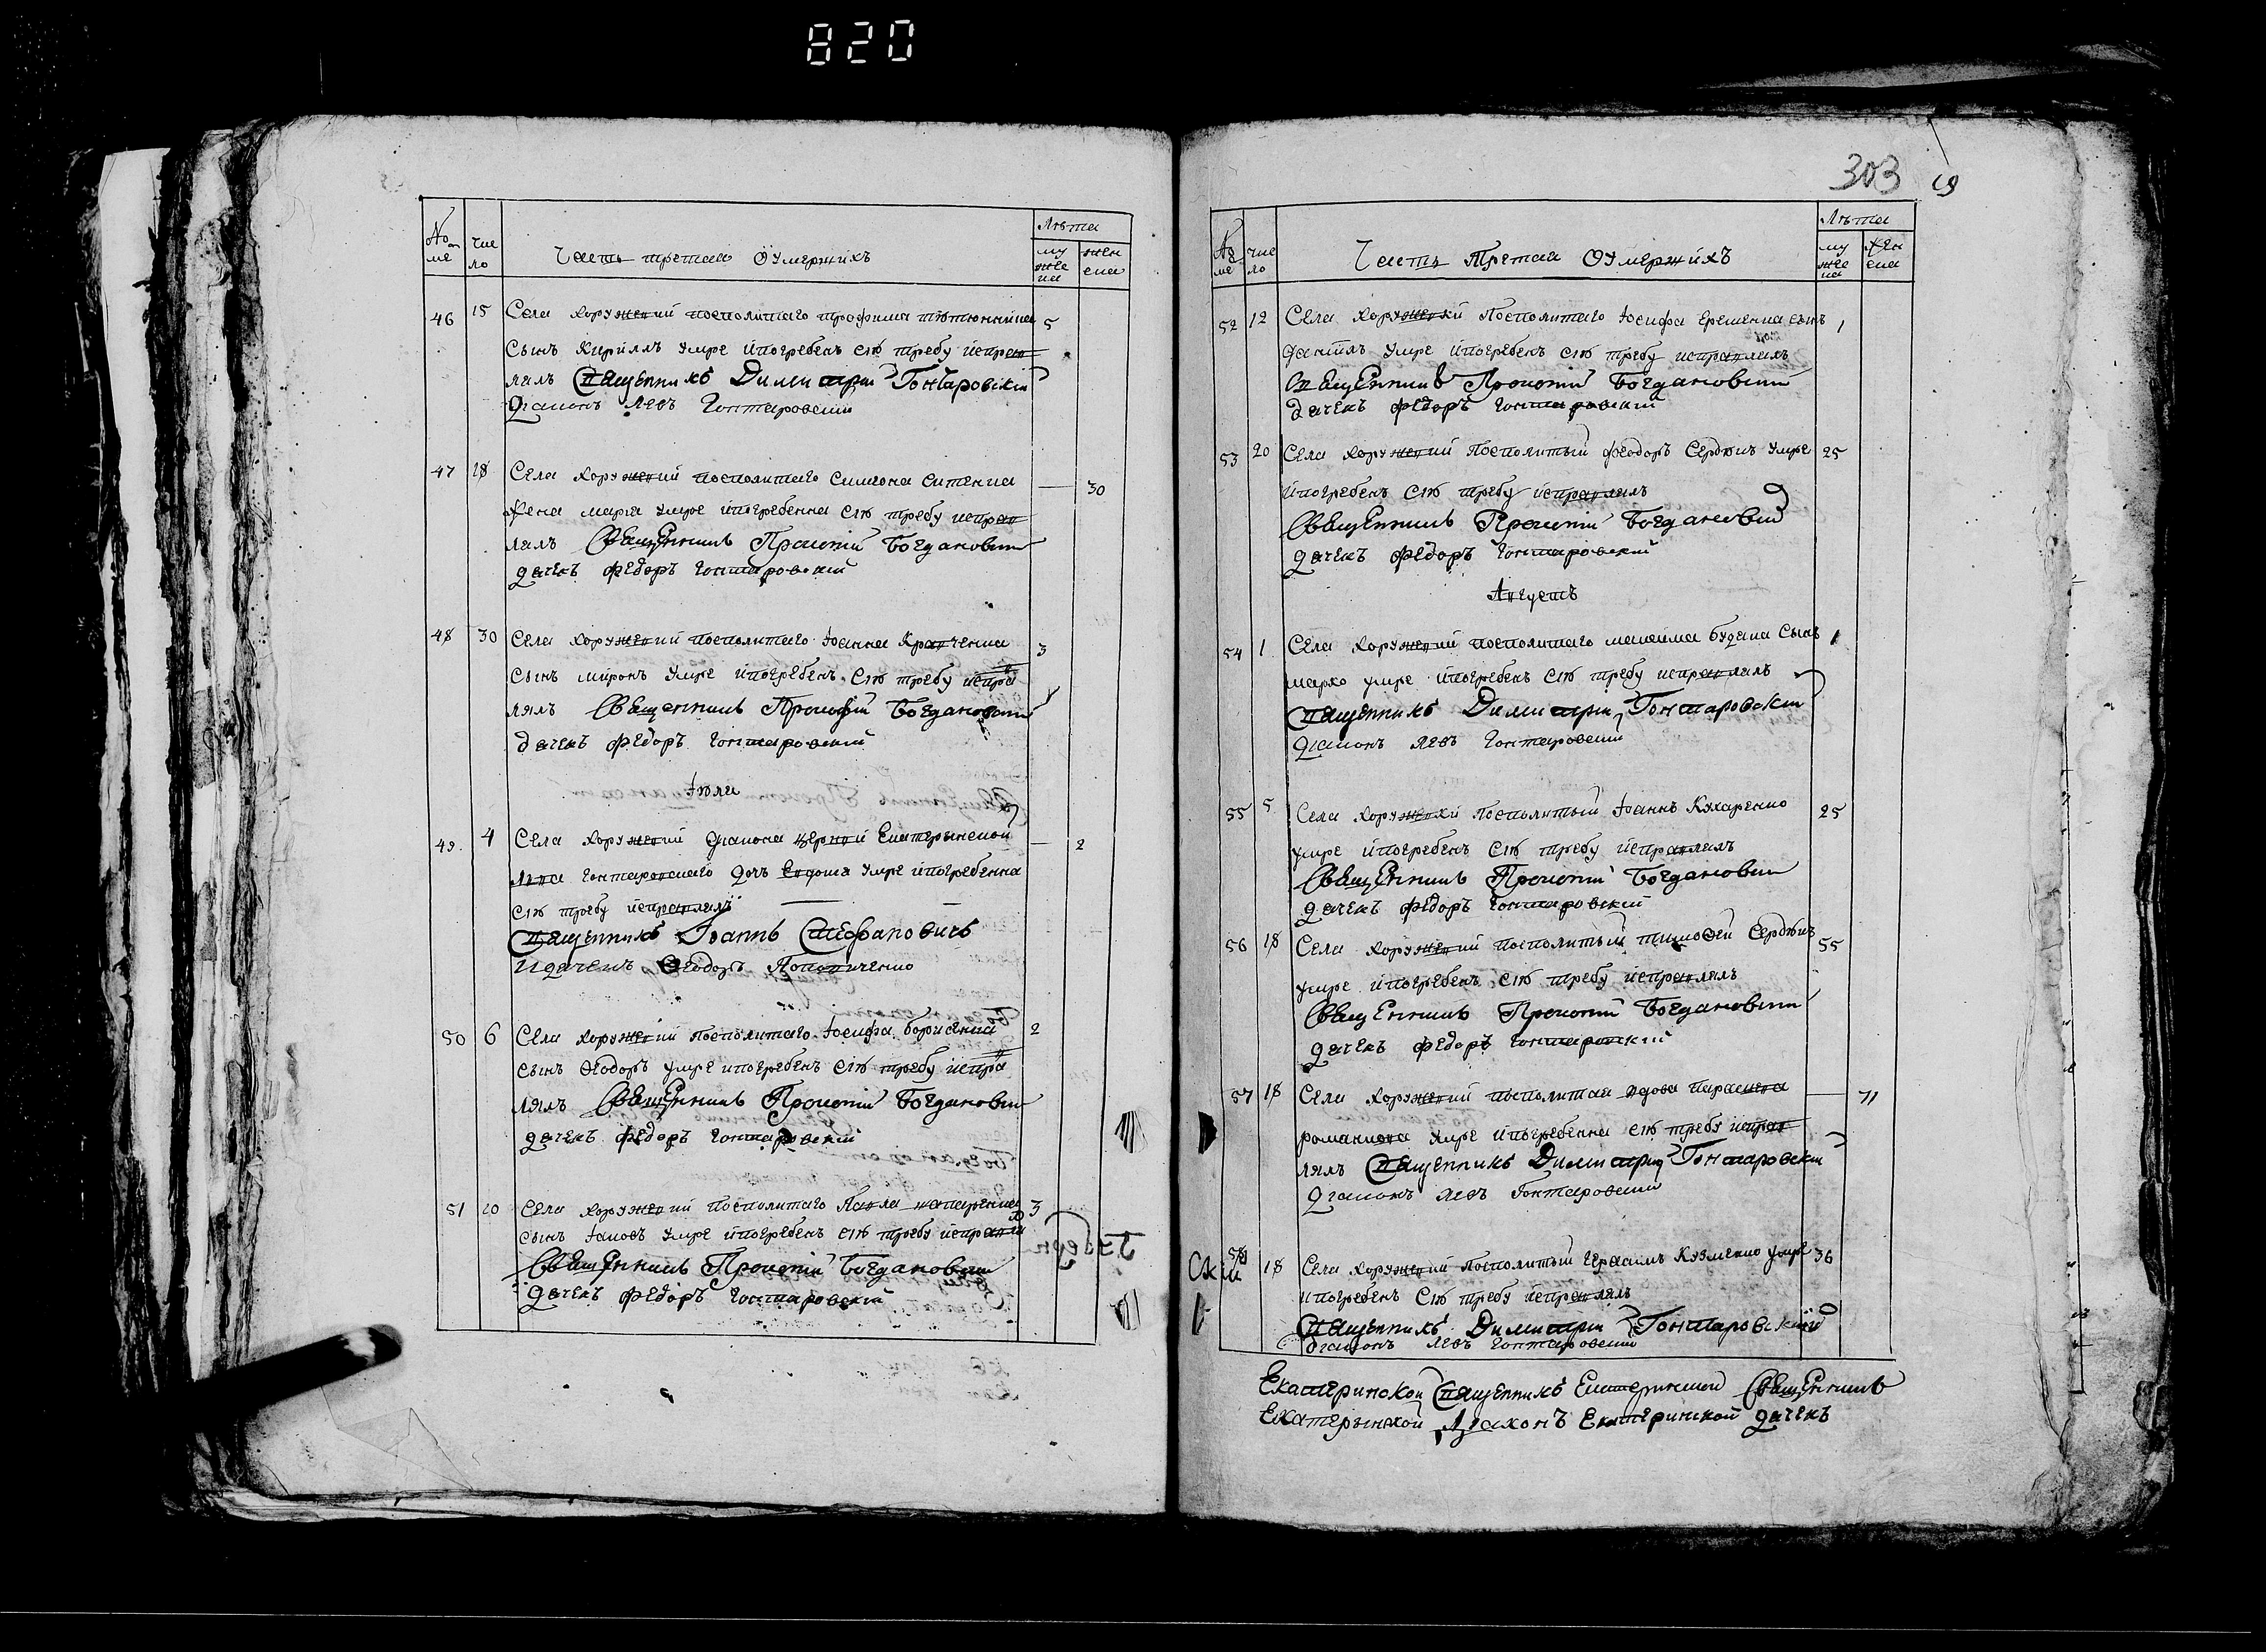 820
№ ме
Число
Часть третая оумержихъ
Лѣта
мужеска
женска
46 15 Села Хоружекий посполитаго трофима тютюнника 5
Сынъ Кирилъ умре ипогребенъ сію требу исправ
лялъ Священникъ Димитрій Гонтаровскій
Діаконъ Левъ Гонтаровскии
47 18 Села Хоружекий посполитаго Симеона Ситенка — 30
жена мария умре ипогребенна сію требу исправ
лялъ Священникъ Прокопій Богдановичъ
дячекъ федоръ Гонтаровский
48 30 Села Хоружекий посполитаго Іоанна Кравченка 3
Сынъ миронъ умре ипогребенъ сію требу исправ
лялъ Священникъ Прокофій Богдановичъ
дячекъ федоръ Гонтаровский
Іюли
49 4 Села Хоружекий Діакона церкви Екатерынской — 2
Льва Гонтаровскаго дочъ Евдокия умре ипогребенна
сію требу исправлялъ
Священникъ Іоаннъ Стефановичъ
Идячекъ Ѳеодоръ Попопиченко
50 6 Села Хоружекий посполитаго Іосифа борисенка 2
сынъ Ѳеодоръ умре ипогребенъ сію требу исправ
лялъ Священникъ Прокопій Богдановичъ
дячекъ федоръ Гонтаровский
51 20 Села Хоружекий посполитаго Павла 3
сынъ Іаковъ умре ипогребенъ сію требу исправля
Священникъ Прокопій Богдановичъ
дячекъ федоръ Гонтаровский
303
№ ме
Число
Часть Третая Оумержихъ
Лѣта
мужеска
женска
52 12 Села Хоружекий Посполитаго Іосифа Ерешенка сынъ 1
даниилъ умре ипогребенъ сію требу исправлялъ
Священникъ Прокопій Богдановичъ
дячекъ федоръ Гонтаровский
53 20 Села Хоружекий Посполитый феодоръ Сердюкъ умре 25
ипогребенъ сію требу исправлялъ
Священникъ Прокопій Богдановичъ
дячекъ федоръ Гонтаровский
Августъ
54 1 Села Хоружекий посполитаго максима будака Сынъ 1
марко умре ипогребенъ сію требу исправлялъ
Священникъ Димитрій Гонтаровскій
Діаконъ Левъ Гонтаровский
55 5 Села Хоружекий Посполитый Іоаннъ Кухаренко 25
умре ипогребенъ сію требу исправлялъ
Священникъ Прокопій Богдановичъ
дячекъ федоръ Гонтаровский
56 18 Села Хоружекий посполитый тимоѳей Сердюкъ 55
умре ипогребенъ сію требу исправлялъ
Священникъ Прокопій Богдановичъ
дячекъ федоръ Гонтаровский
57 18 Села Хоружекий посполитая вдова параскева — 71
романкова умре ипогребенна сію требу исправ
лялъ Священникъ Димитрій Гонтаровскій
Діаконъ Левъ Гонтаровский
58 18 Села Хоружекий посполитый Герасимъ Кузменко умре 36
ипогребенъ сію требу исправлялъ
Священникъ Димитрій Гонтаровскій
Діаконъ Левъ Гонтаровский
Екатеринской Священникъ Екатеринской Священникъ
Екатерынской Діаконъ Екатеринской дячекъ